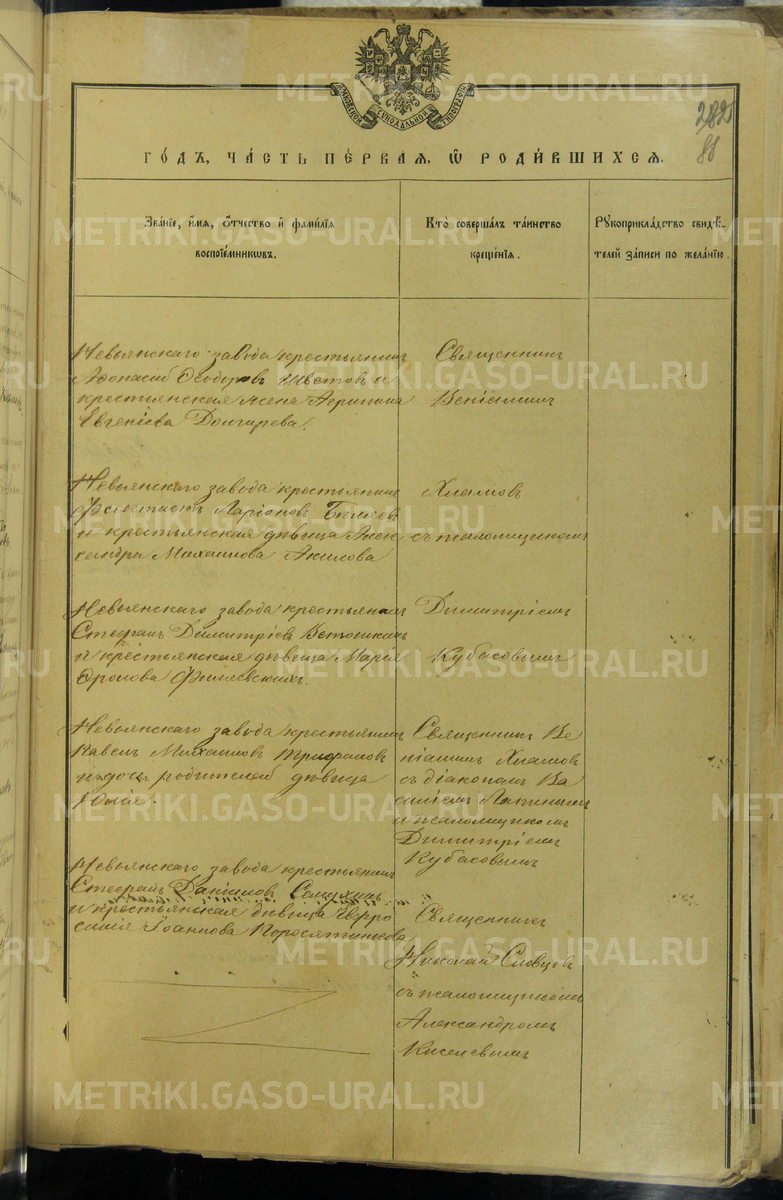 МОСКОВСКОЙ СѴНОДАЛЬНОЙ ТИПОГРАФІИ
282
88
ГОДЪ, ЧАСТЬ ПЕРВАЯ, Ѡ РОДИВШИХСЯ.
Званіе, имя, отчество и фамилія
воспріемниковъ.
Кто совершалъ таинство
крещенія.
Рукоприкладство свидѣ-
телей записи по желанію.
Невьянскаго завода крестьянинъ
Ѳеодоровъ Швецовъ и
крестьянская жена Агрипина
Евгеніева Долгирева.
Священникъ
Веніаминъ
Невьянскаго завода крестьянинъ
Ларіоновъ
и крестьянская дѣвица Алек
сандра Михаилова Акилова
Хламовъ
съ псаломщикомъ
Невьянскаго завода крестьянинъ
Стефанъ Димитріевъ Ветошкинъ
и крестьянская дѣвица Марія
Димитріемъ
Кубасовымъ
Невьянскаго завода крестьянинъ
Павелъ Михаиловъ
и дочь родителей дѣвица
Юлія.
Священникъ Ве
ніаминъ Хламовъ
съ діакономъ Ва
силіемъ Лапинымъ
и псаломщикомъ
Димитріемъ
Кубасовымъ
Невьянскаго завода крестьянинъ
Стефанъ Даніиловъ Семухинъ
и крестьянская дѣвица Евфро
синія Іоаннова Поросятникова
Священникъ
Николай Словцовъ
съ псаломщикомъ
Александромъ
Киселевымъ
METRIKI.GASO-URAL.RU